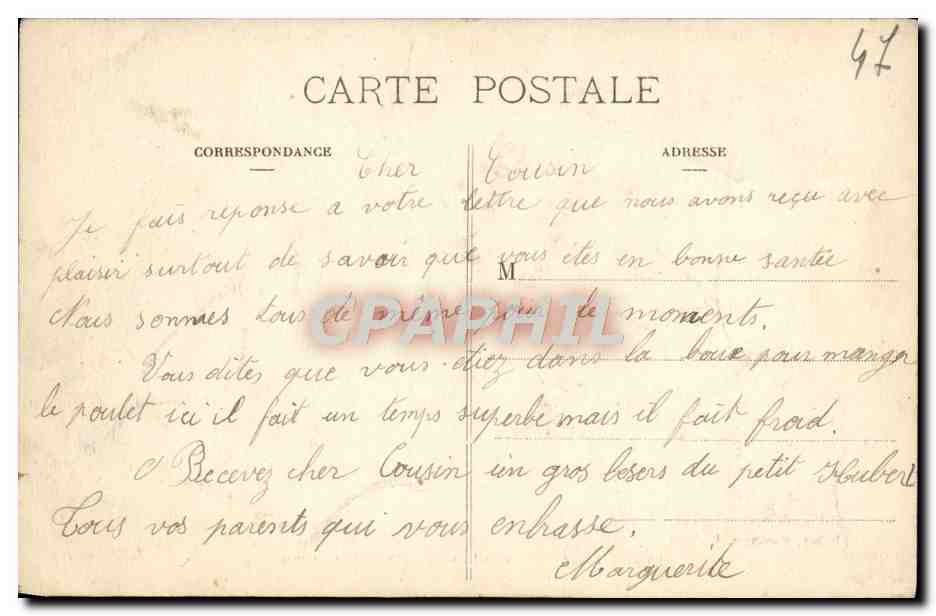 47
CARTE POSTALE
CORRESPONDANCE
ADRESSE
Cher Cousin
Je fais reponse a votre lettre que nous avons reçu avec
plaisir surtout de savoir que vous êtes en bonne santée
M
Nous sommes tous de même pour le moments.
Vous dites que vous étiez dans la boue pour manger
le poulet ici il fait un temps superbe mais il fait froid.
Recevez cher Cousin un gros besers du petit Hubert
Tous vos parents qui vous enbrasse.
Marguerite
CPAPHIL